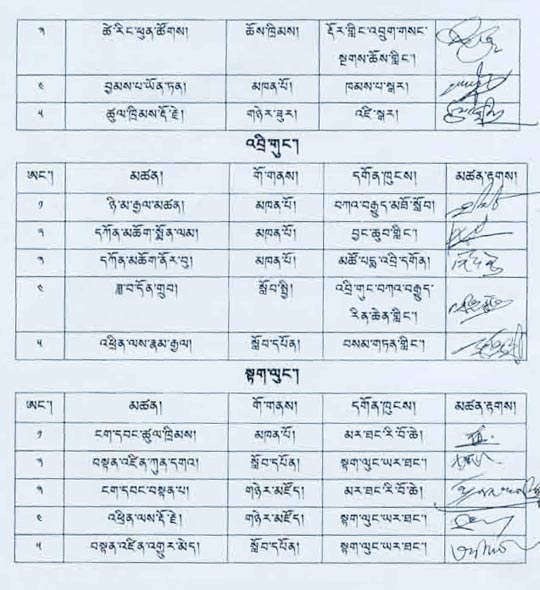 ༣ ཚེ་རིང་ཕུན་ཚོགས། ཆོས་ཁྲིམས། རྡོར་གླིང་འབྲུག་གསང་
སྔགས་ཆོས་གླིང་།
༤ བྱམས་པ་ཡོན་ཏན། མཁན་པོ། ཁམས་པ་སྒར།
༥ ཚུལ་ཁྲིམས་རྡོ་རྗེ། གཉེར་ཟུར། འཛི་སྒར།
འབྲི་གུང་།
ཨང་། མཚན། གོ་གནས། དགོན་ཁུངས། མཚན་རྟགས།
༡ ཉི་མ་རྒྱལ་མཚན། མཁན་པོ། བཀའ་བརྒྱུད་མཐོ་སློབ།
༢ དཀོན་མཆོག་སྨོན་ལམ། མཁན་པོ། བྱང་ཆུབ་གླིང་།
༣ དཀོན་མཆོག་ནོར་བུ། མཁན་པོ། མཚོ་པདྨ་འབྲི་དགོན།
༤ ཟླ་བ་དོན་གྲུབ། སློབ་སྤྱི། འབྲི་གུང་བཀའ་བརྒྱུད་
རིན་ཆེན་གླིང་།
༥ འཕྲིན་ལས་རྣམ་རྒྱལ། སློབ་དཔོན། བསམ་གཏན་གླིང་།
སྟག་ལུང་།
ཨང་། མཚན། གོ་གནས། དགོན་ཁུངས། མཚན་རྟགས།
༡ ངག་དབང་ཚུལ་ཁྲིམས། མཁན་པོ། མར་ཐང་རི་བོ་ཆེ།
༢ བསྟན་འཛིན་ཀུན་དགའ། སློབ་དཔོན། སྟག་ལུང་ཡར་ཐང་།
༣ ངག་དབང་བསྟན་པ། གཉེར་མཛོད། མར་ཐང་རི་བོ་ཆེ།
༤ འཕྲིན་ལས་རྡོ་རྗེ། གཉེར་མཛོད། སྟག་ལུང་ཡར་ཐང་།
༥ བསྟན་འཛིན་འགྱུར་མེད། སློབ་དཔོན། སྟག་ལུང་ཡར་ཐང་།